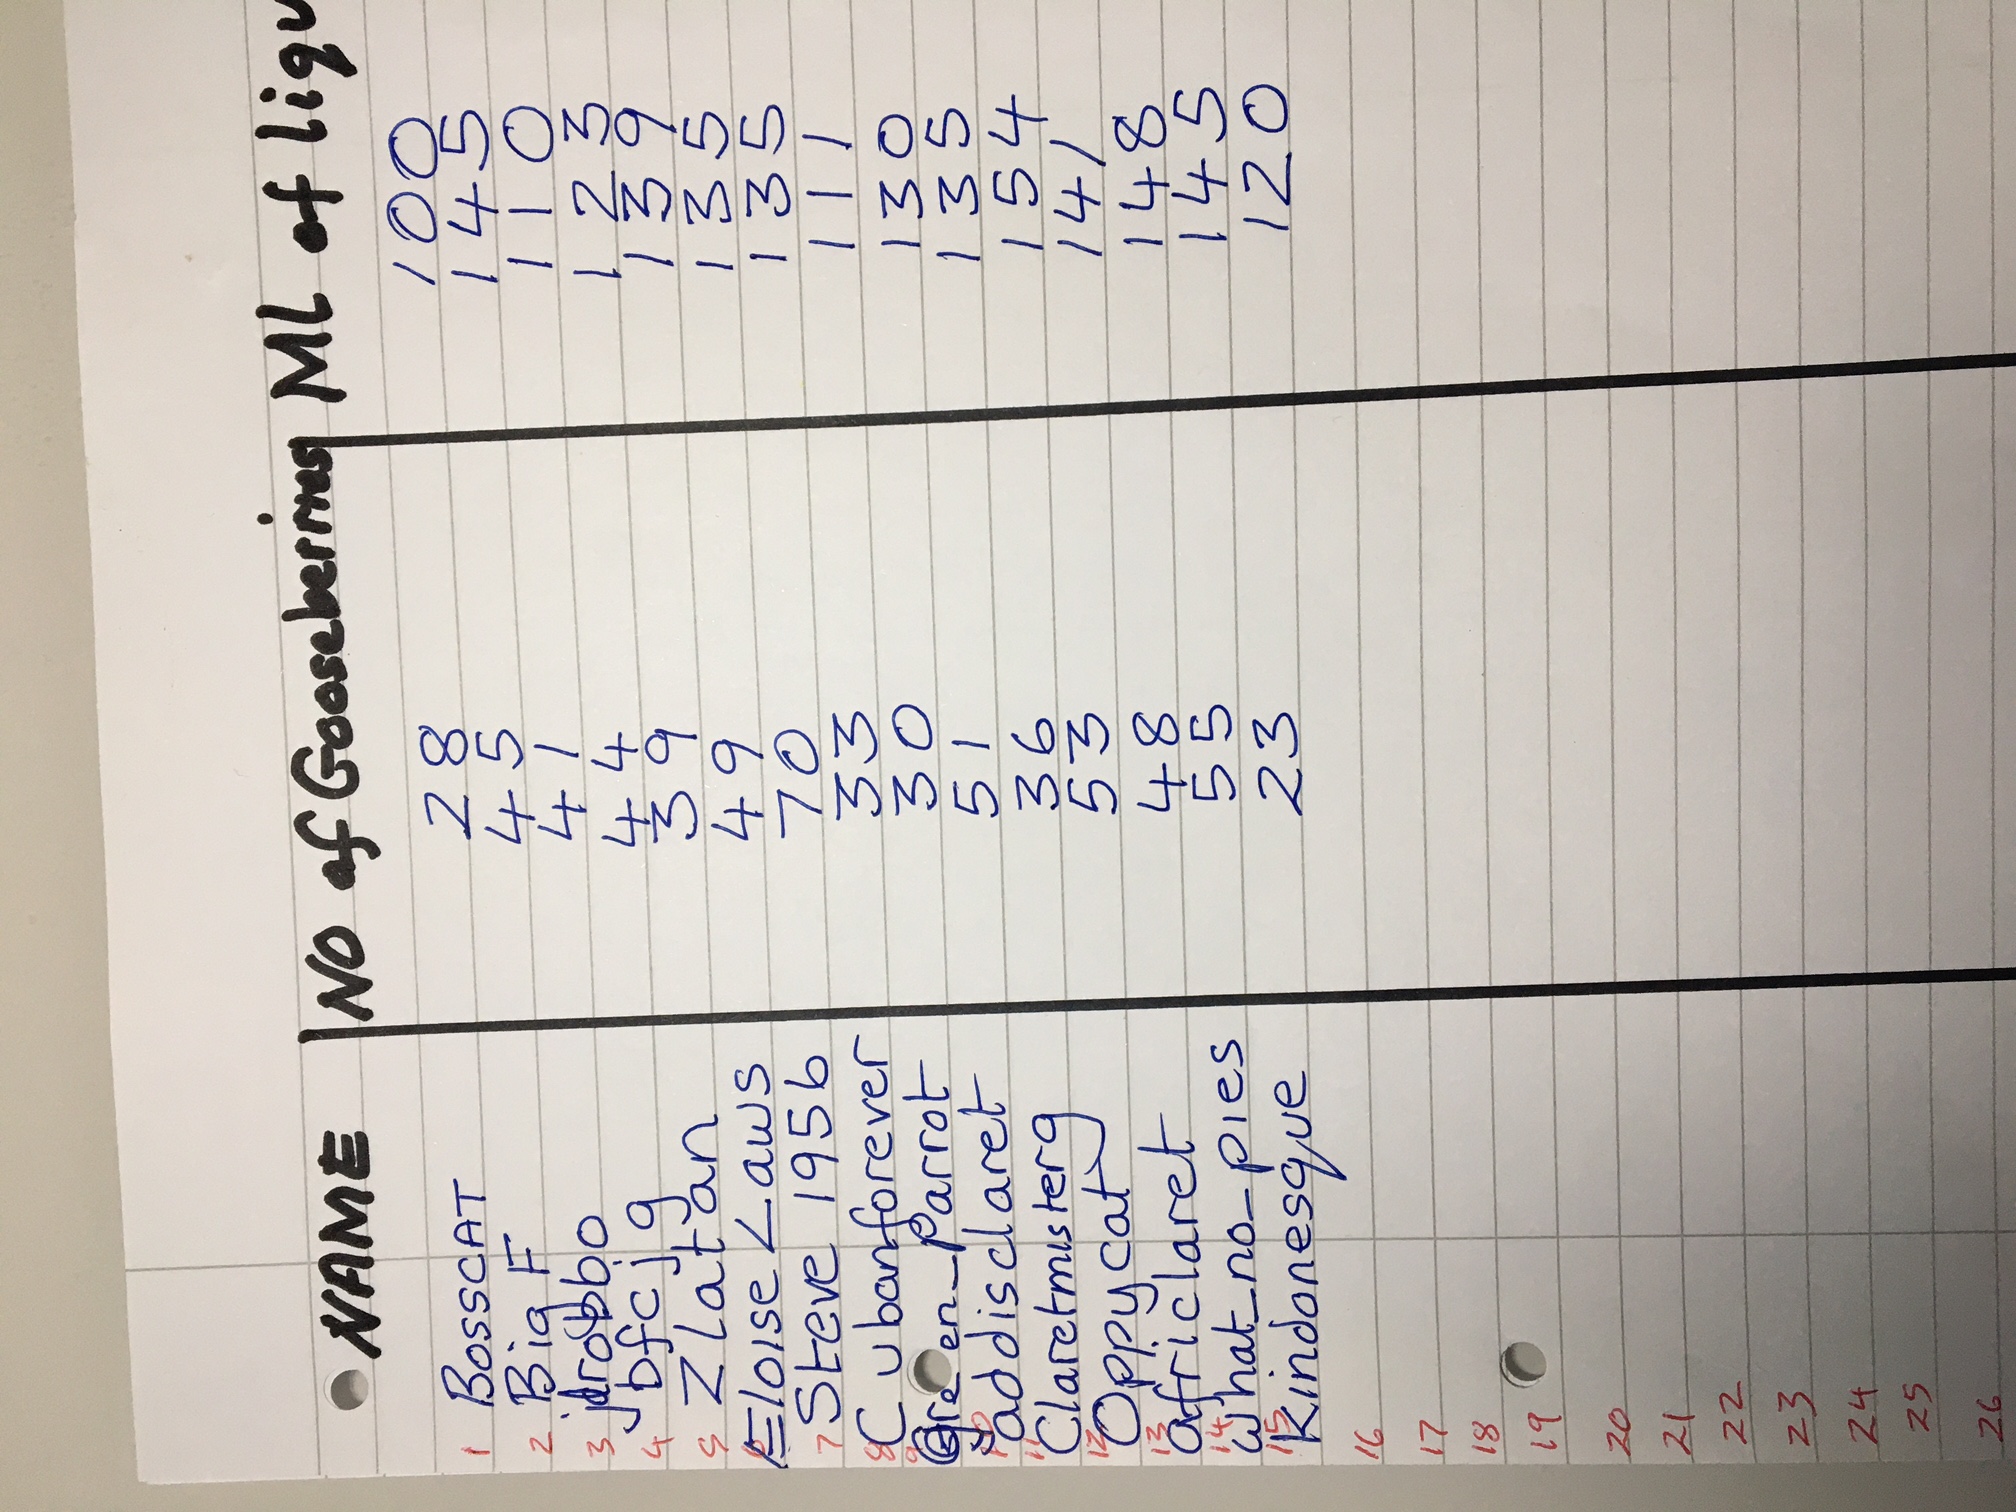 NAME NO of Gooseberries ML of liqu
1 BossCAT 28 100
2 Big F 45 145
3 jrobbo 41 110
4 jbfcjg 44 123
5 ZLatan 39 139
6 Eloise Laws 49 135
7 Steve 1956 70 135
8 Cubanforever 33 111
9 Green_Parrot 30 130
10 addisclaret 51 135
11 Claretmisterg 36 154
12 Oppycat 53 141
13 africlaret 48 148
14 what_no_pies 55 145
15 Kindonesque 23 120
16
17
18
19
20
21
22
23
24
25
26